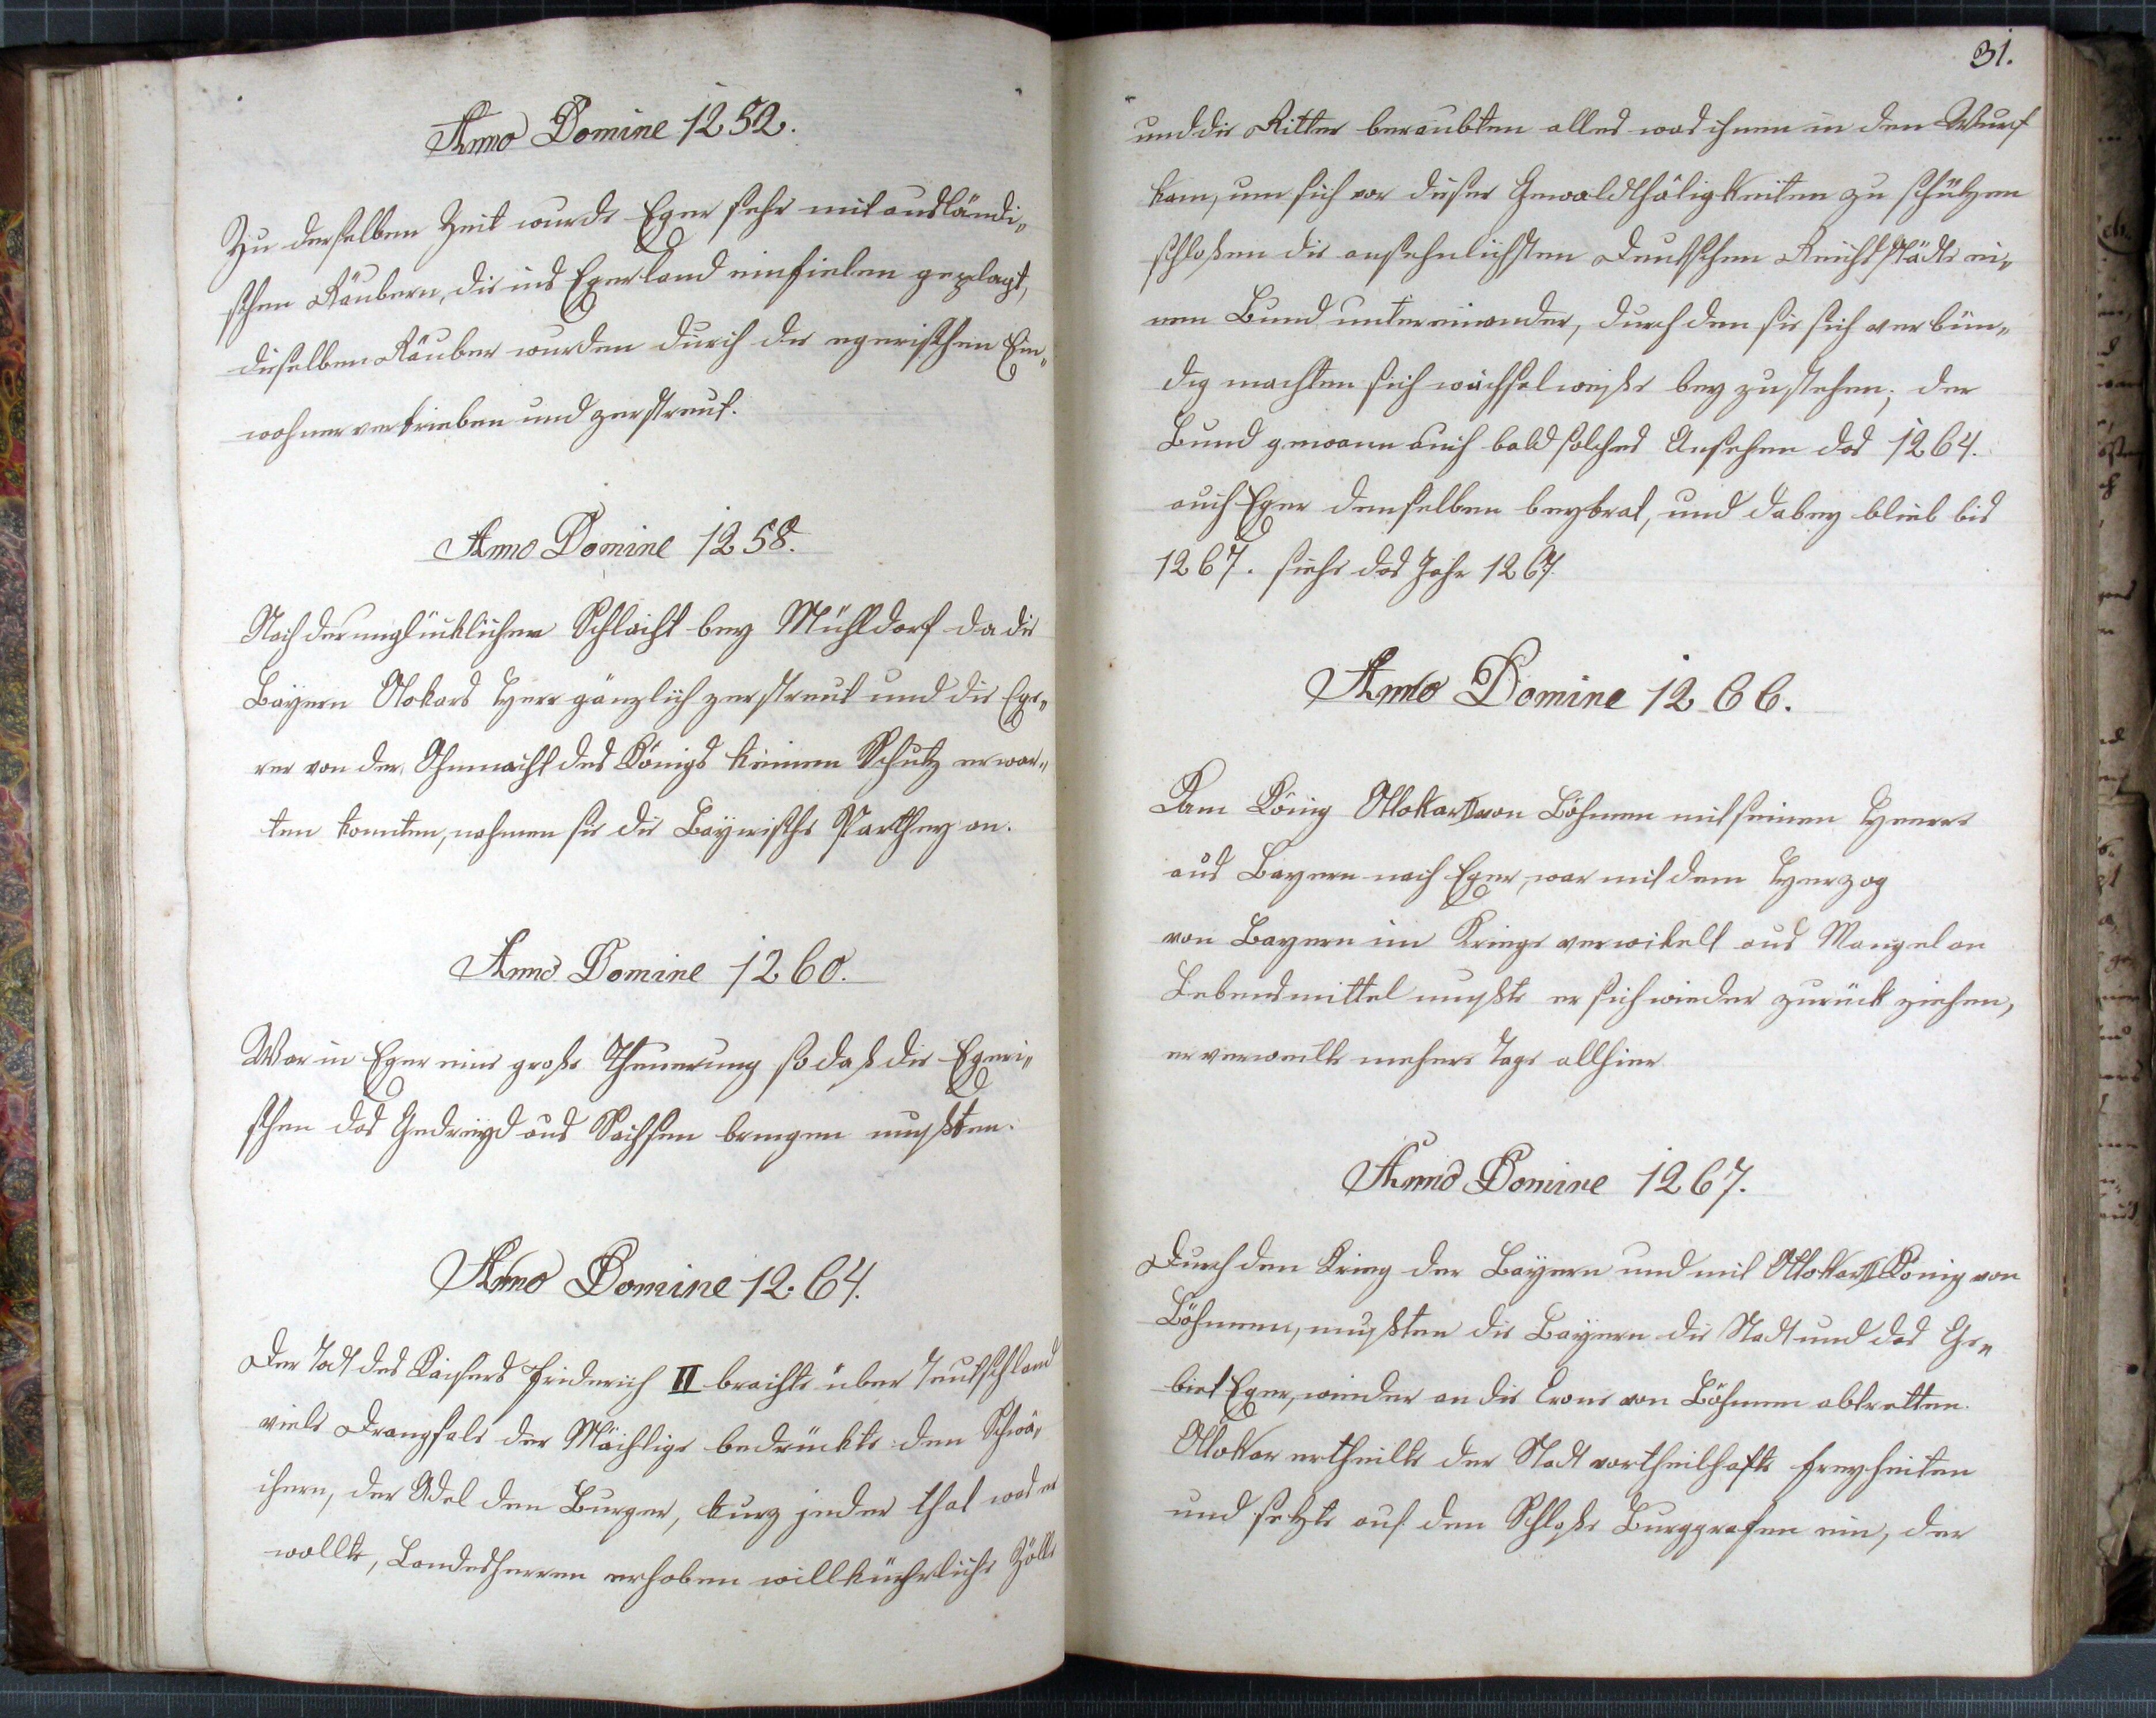 Anno Domine 1252.
Zu derselben Zeit wurde Eger sehr mit ausländi„
schen Räubern, die ins Egerland einfielen geplagt,
dieselben Räuber wurden durch die egerischen Ein„
wohner vertrieben und zerstreut.
Anno Domine 1258.
Nach der unglücklichen Schlacht bey Mühldorf da die
Bayern Otokars Heer gänzlich zerstreut und die Ege„
rer von der Ohnmacht des Königs keinen Schutz erwar„
ten konnten, nahmen sie die Bayrische Parthey an.
Anno Domine 1260.
War in Eger eine große Theuerung so daß die Egeri„
schen das Gedreyd aus Sachsen bringen mußten.
Anno Domine 1264.
Der Tod des Kaisers Friderich II brachte über Teutschland
viele Drangsale der Mächtige bedrückte den Schwä„
chern, der Adel den Burger, kurz jeder that was er
wollte, Landesherren erhoben willkührliche Zölle
31.
und die Ritter beraubten alles was ihnen in den Wurf
kam, um sich vor dieser Gewaldthätigkeiten zu schützen
schloßen die ansehnlichsten Deutschen Reichsstädte ei„
nen Bund untereinander, durch den sie sich verbün„
dig machten sich wächselweiße bey zustehen; der
Bund gewann auch bald solches Ansehen das 1264.
auch Eger demselben beytrat, und dabey blieb bis
1267. siehe das Jahr 1267.
Anno Domine 1266.
Kam König Ottokar II von Böhmen mit seinen Heere
aus Bayern nach Eger, war mit dem Herzog
von Bayern im Kriege verwikelt aus Mangel an
Lebensmittel mußte er sich wieder zurück ziehen,
er verweilte mehere Tage allhier
Anno Domine 1267.
Durch den Krieg der Bayern und mit Ottokar II König von
Böhmen, mußten die Bayern die Stadt und das Ge„
biet Eger, wieder an die Crone von Böhmen abtretten.
Ottokar ertheilte der Stadt vortheilhafte Freyheiten
und setzte auf dem Schloße Burggrafen ein, der